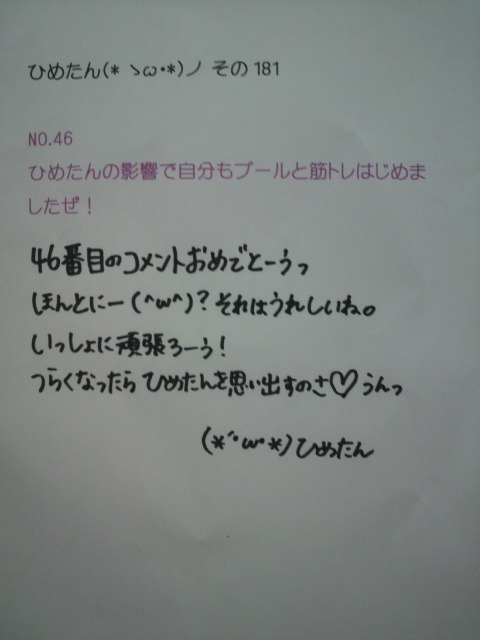 ひめたん(* ゝω・*)ノ その181
NO.46
ひめたんの影響で自分もプールと筋トレはじめま
したぜ！
46番目のコメントおめでとーうっ
ほんとにー(^ω^)?それはうれしいね。
いっしょに頑張ろーう!
つらくなったらひめたんを思い出すのさ♡うんっ
(*´・ω・*)ひめたん